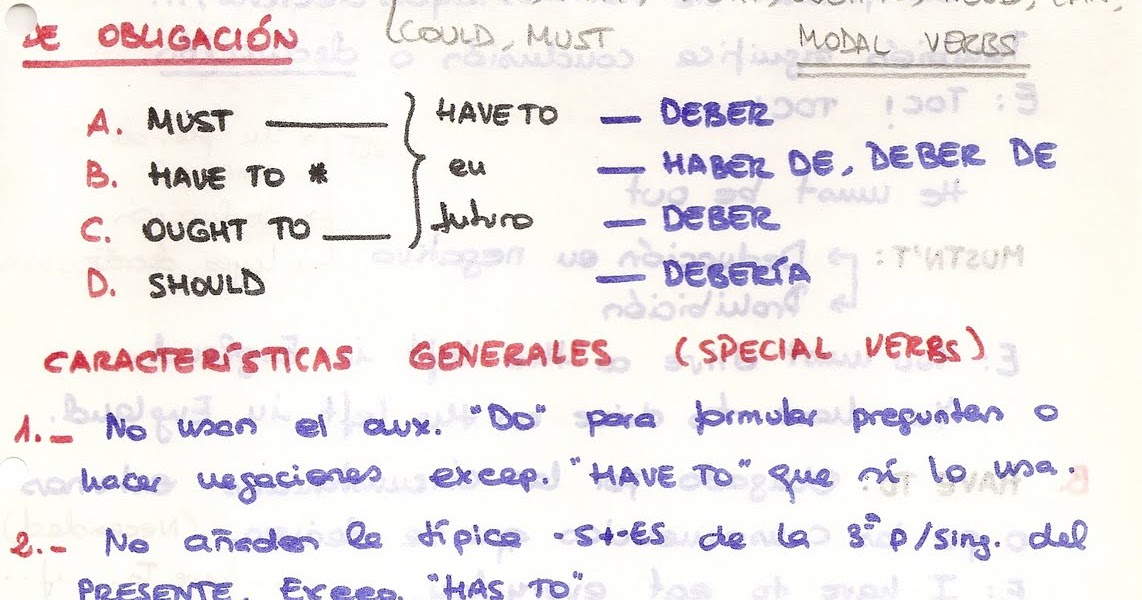 DE OBLIGACIÓN
COULD, MUST
MODAL VERBS
A. MUST } HAVE TO — DEBER
B. HAVE TO * eu — HABER DE, DEBER DE
C. OUGHT TO futuro — DEBER
D. SHOULD — DEBERÍA
CARACTERÍSTICAS GENERALES (SPECIAL VERBS)
1.- No usan el aux. "DO" para formular preguntas o
hacer negaciones excep. "HAVE TO" que sí lo usa.
2.- No añaden la típica -S+-ES de la 3ª p/sing. del
PRESENTE. Excep. "HAS TO"